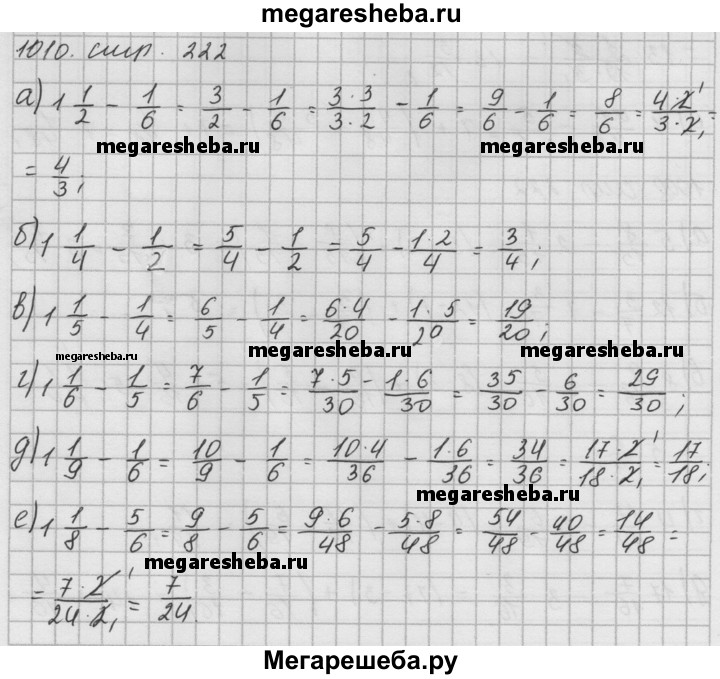 megaresheba.ru
1010. стр. 222
а) 1 1/2 - 1/6 = 3/2 - 1/6 = 3·3/3·2 - 1/6 = 9/6 - 1/6 = 8/6 = 4·2¹/3·2₁ =
megaresheba.ru megaresheba.ru
= 4/3;
б) 1 1/4 - 1/2 = 5/4 - 1/2 = 5/4 - 1·2/4 = 3/4;
в) 1 1/5 - 1/4 = 6/5 - 1/4 = 6·4/20 - 1·5/20 = 19/20;
megaresheba.ru megaresheba.ru megaresheba.ru
г) 1 1/6 - 1/5 = 7/6 - 1/5 = 7·5/30 - 1·6/30 = 35/30 - 6/30 = 29/30;
д) 1 1/9 - 1/6 = 10/9 - 1/6 = 10·4/36 - 1·6/36 = 34/36 = 17·2¹/18·2₁ = 17/18;
megaresheba.ru
е) 1 1/8 - 5/6 = 9/8 - 5/6 = 9·6/48 - 5·8/48 = 54/48 - 40/48 = 14/48 =
megaresheba.ru
= 7·2¹/24·2₁ = 7/24.
Мегарешеба.ру